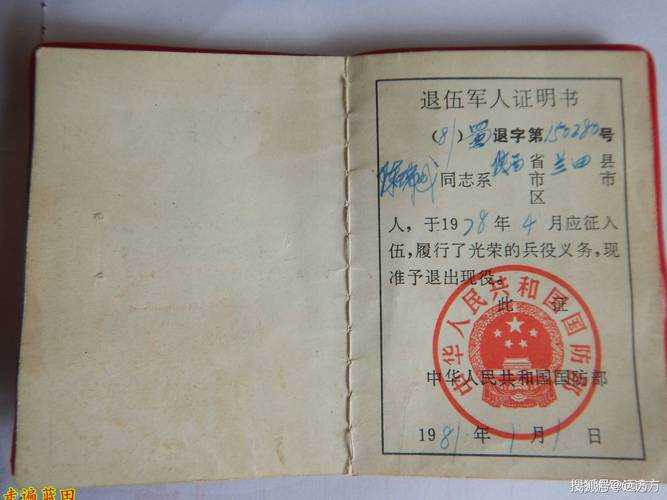 退伍军人证明书
(81)蜀退字第150280号
陈 同志系陕西省市区兰田县市
人，于1978年4月应征入
伍，履行了光荣的兵役义务，现
准予退出现役。
此证
中华人民共和国国防部
中华人民共和国国防部
1981年1月1日
走遍蓝田
搜狐号@达透方